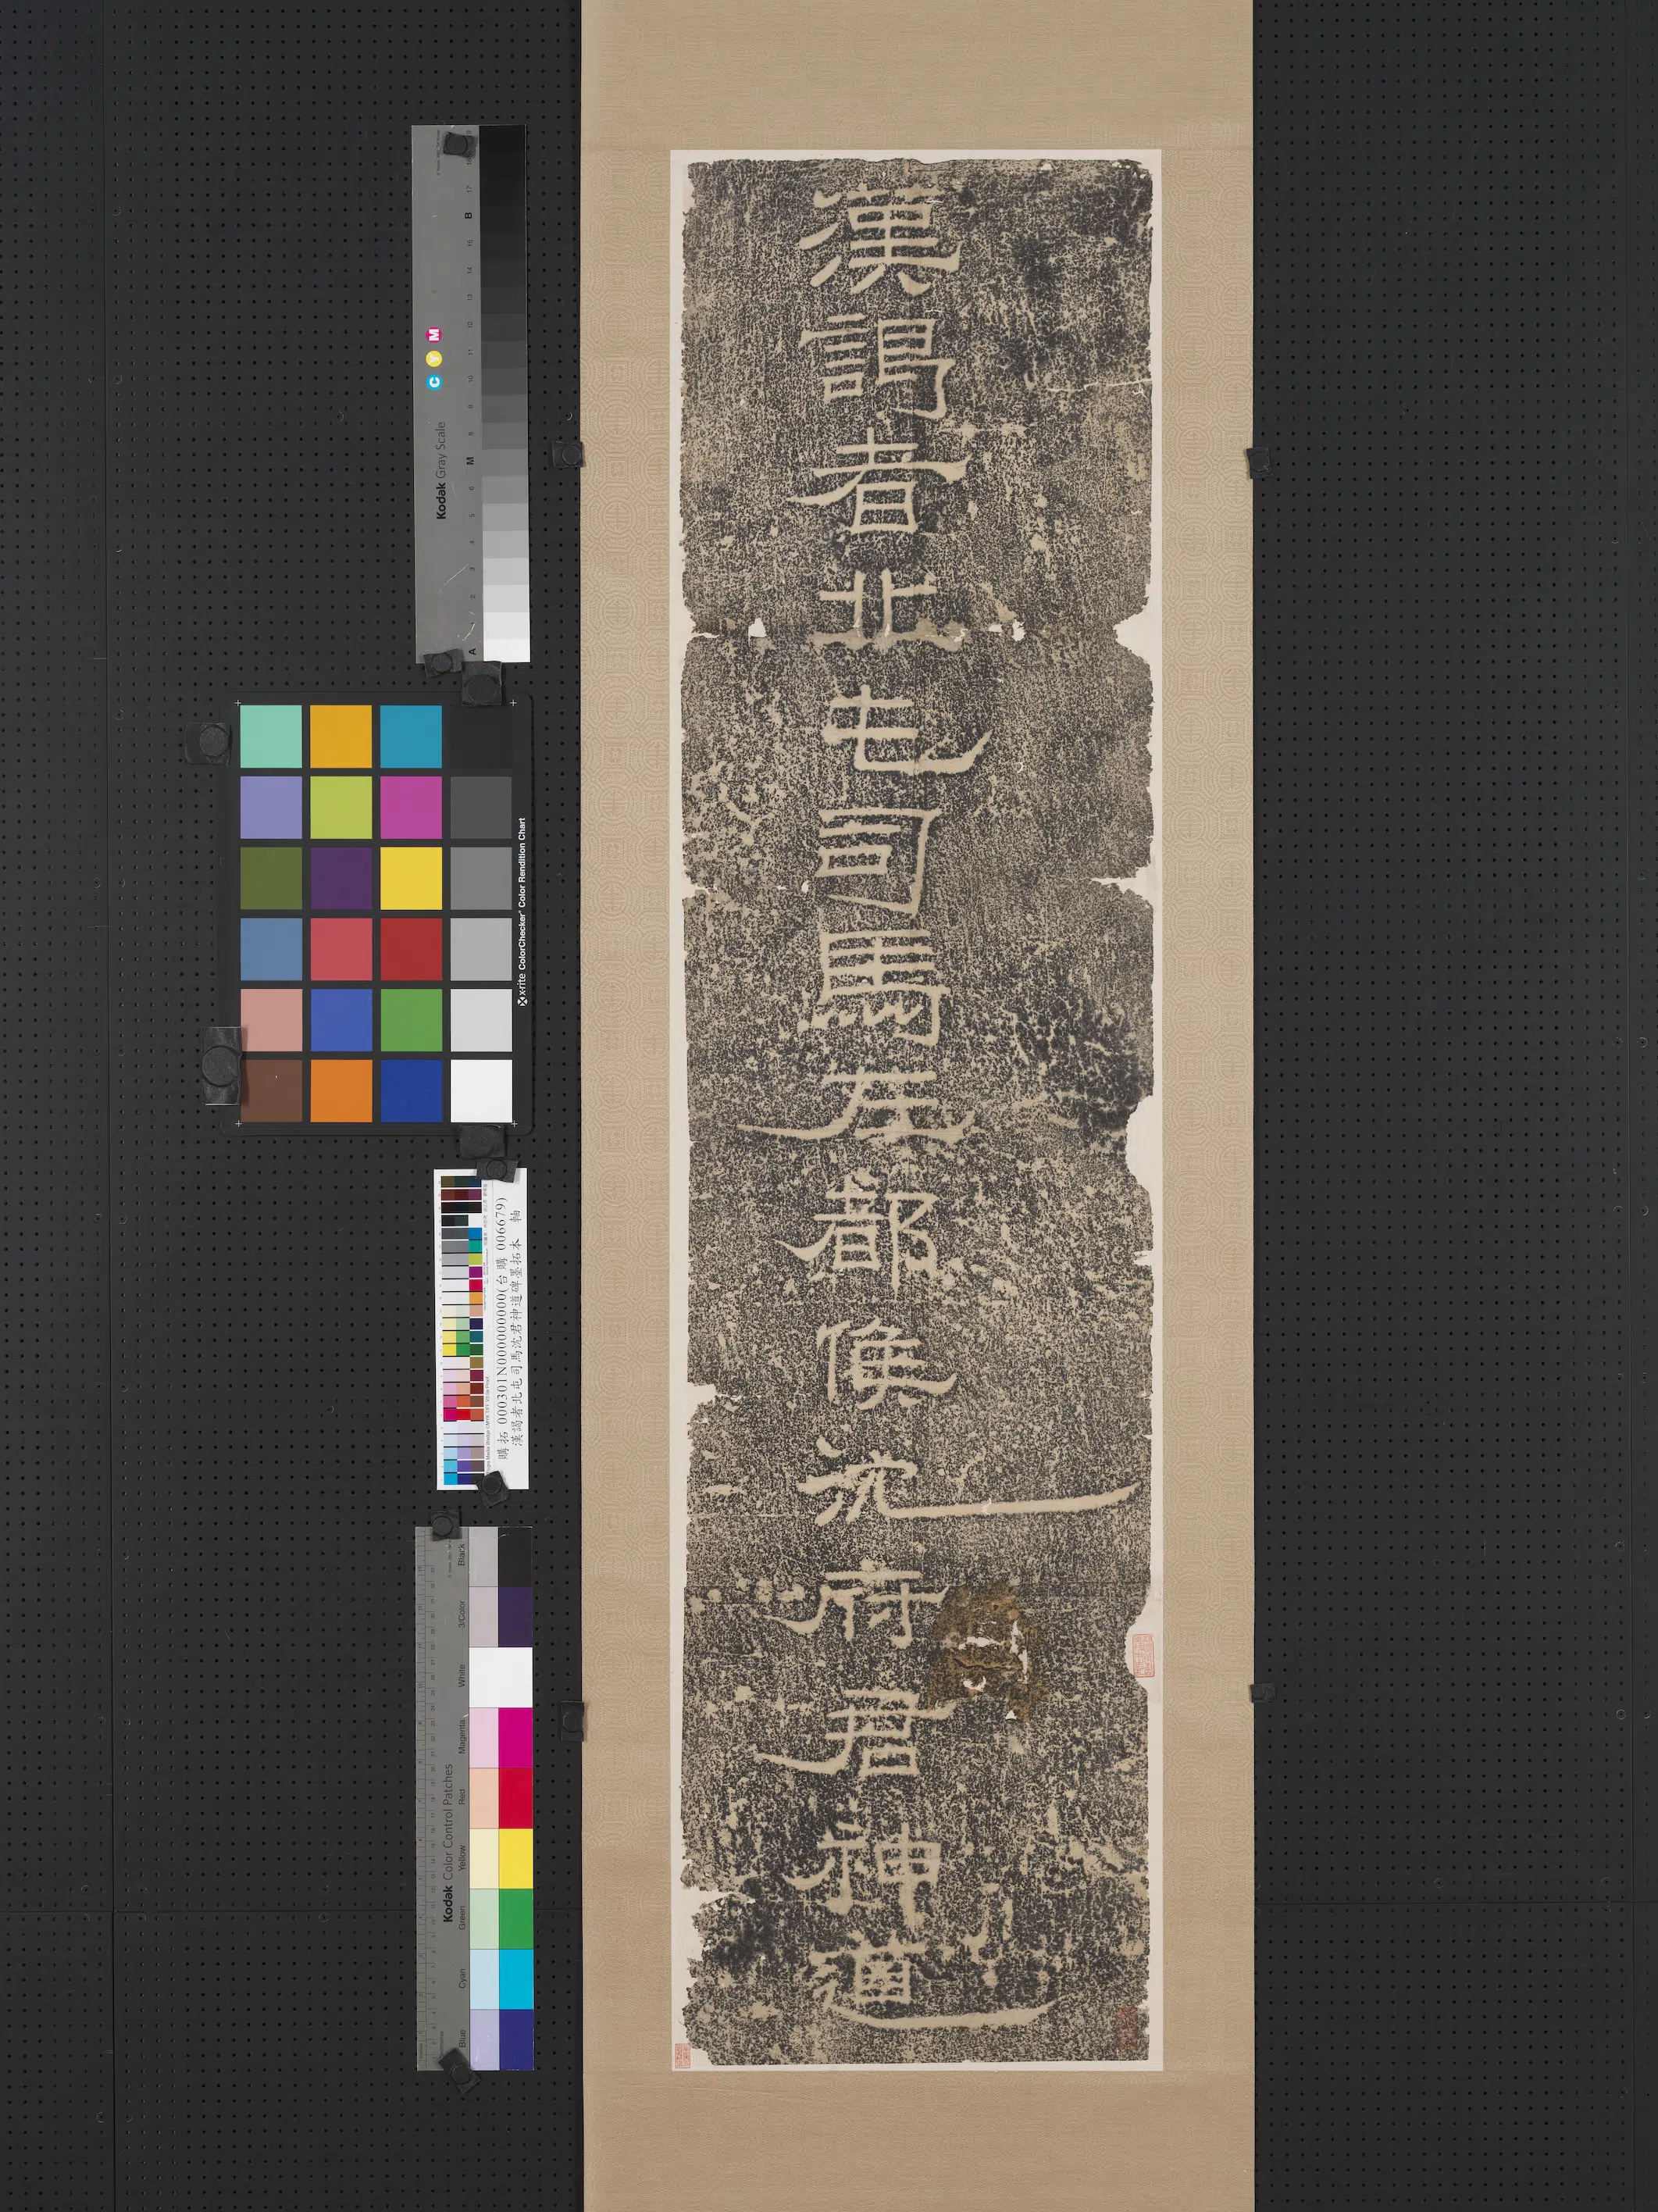 漢謁者北屯司馬左都侯沈府君神道
Kodak Gray Scale
C Y M
A 1 2 3 4 5 6 M 8 9 10 11 12 13 14 15 B 17
x-rite ColorChecker Color Rendition Chart
購拓 000301N000000000(台購 006679)
漢謁者北屯司馬沈君神道碑墨拓本 軸
Kodak Color Control Patches
Blue Cyan Green Yellow Red Magenta White 3/Color Black